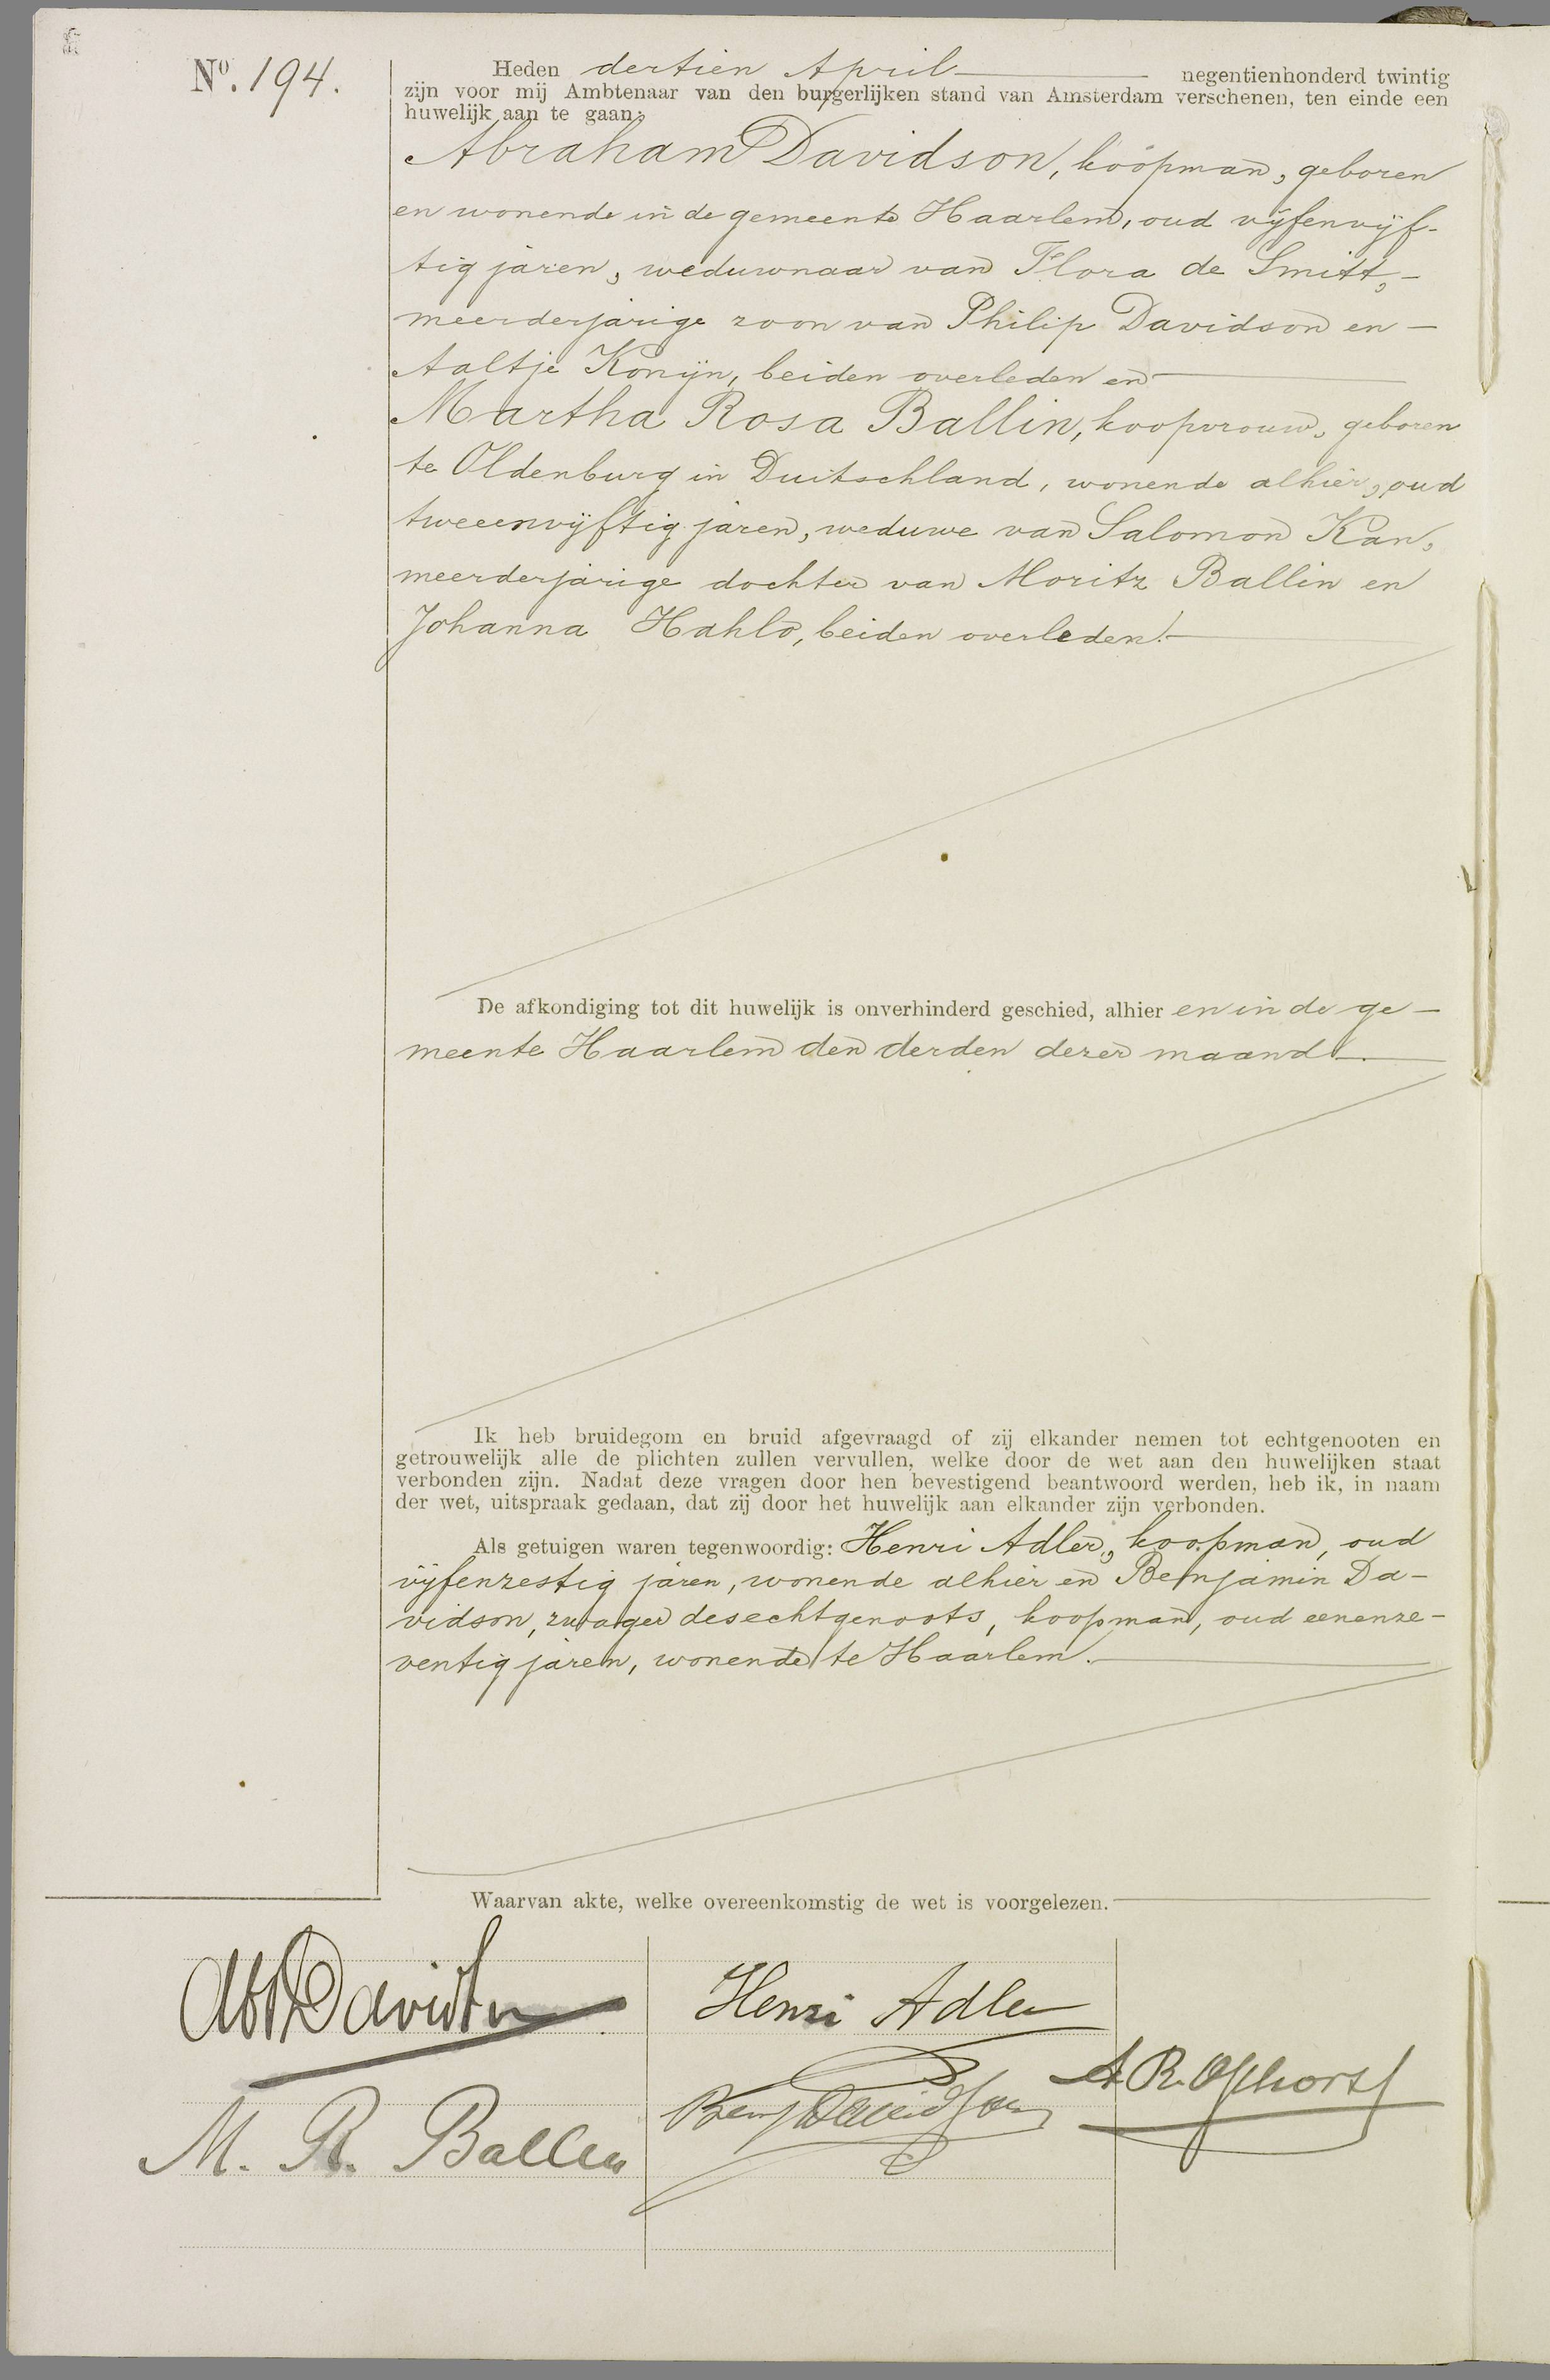 Nº. 194.
Heden dertien April negentienhonderd twintig
zijn voor mij Ambtenaar van den burgerlijken stand van Amsterdam verschenen, ten einde een
huwelijk aan te gaan:
Abraham Davidson, koopman, geboren
en wonende in de gemeente Haarlem, oud vijfenvijf-
tig jaren, weduwnaar van Flora de Smitt, -
meerderjarige zoon van Philip Davidson en -
Aaltje Konijn, beiden overleden en
Martha Rosa Ballin, koopvrouw, geboren
te Oldenburg in Duitschland, wonende alhier, oud
tweeenvijftig jaren, weduwe van Salomon Kan,
meerderjarige dochter van Moritz Ballin en
Johanna Hahlo, beiden overleden.
De afkondiging tot dit huwelijk is onverhinderd geschied, alhier en in de ge-
meente Haarlem den derden dezer maand.
Ik heb bruidegom en bruid afgevraagd of zij elkander nemen tot echtgenooten en
getrouwelijk alle de plichten zullen vervullen, welke door de wet aan den huwelijken staat
verbonden zijn. Nadat deze vragen door hen bevestigend beantwoord werden, heb ik, in naam
der wet, uitspraak gedaan, dat zij door het huwelijk aan elkander zijn verbonden.
Als getuigen waren tegenwoordig: Henri Adler, koopman, oud
vijfenzestig jaren, wonende alhier en Benjamin Da-
vidson, zwager des echtgenoots, koopman, oud eenenze-
ventig jaren, wonende te Haarlem.
Waarvan akte, welke overeenkomstig de wet is voorgelezen.
Abr Davidson
Henri Adler
Benj Davidson
A. R. Ophorst
M. R. Ballin